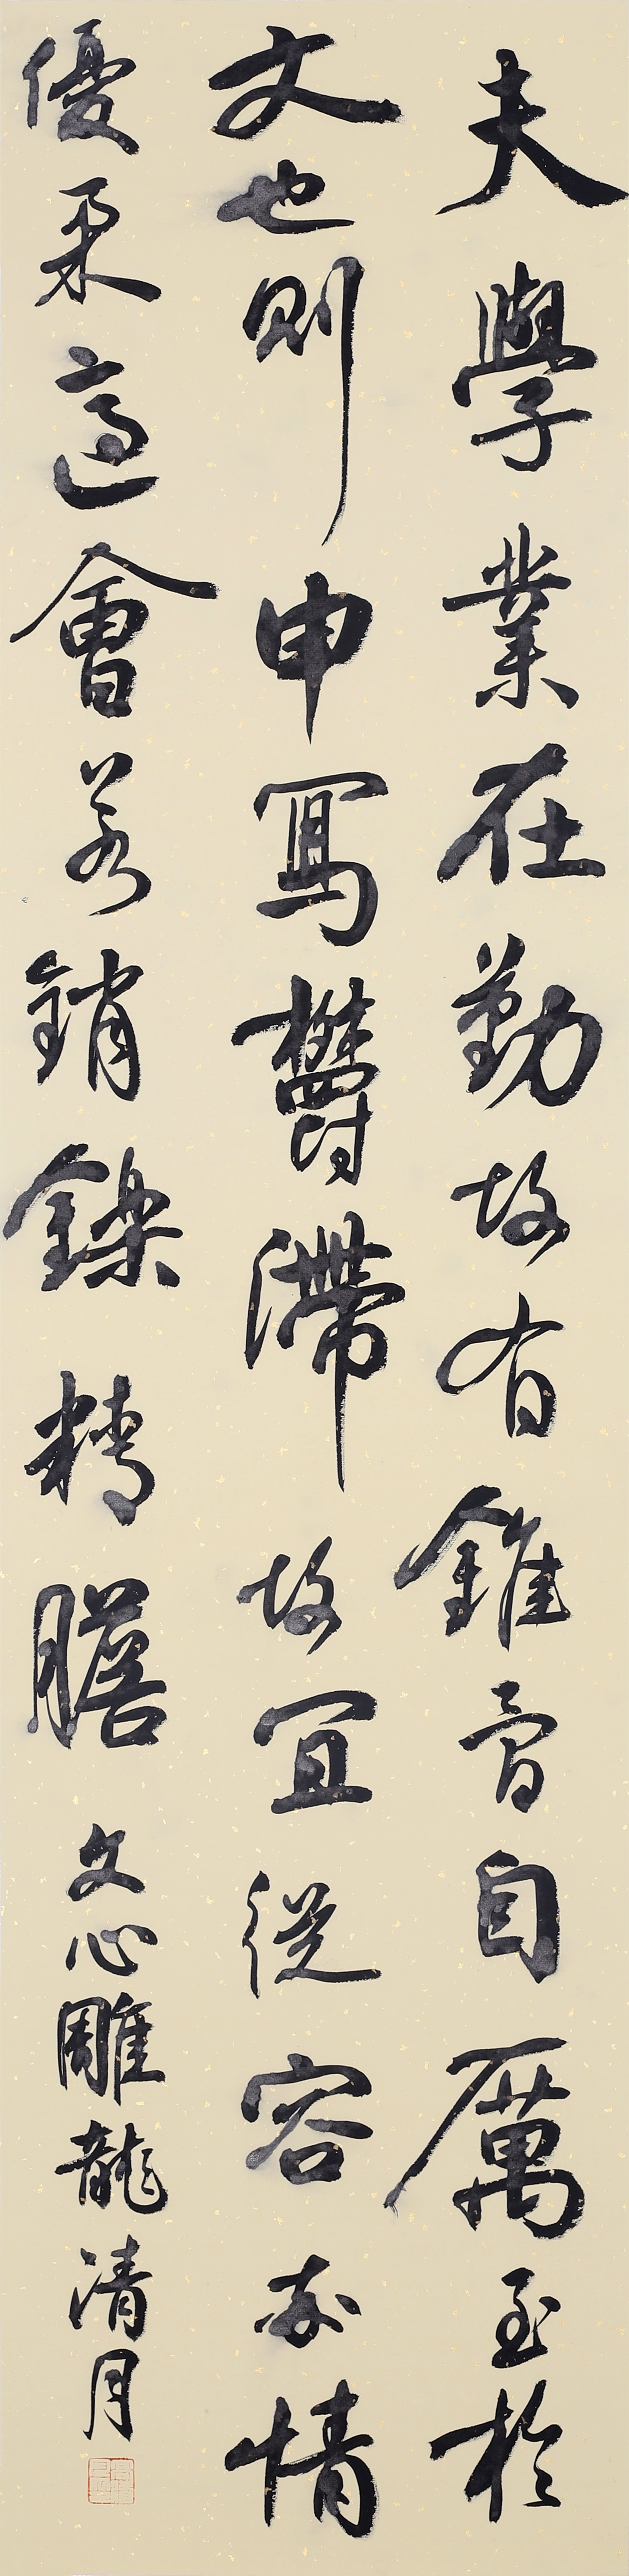 夫學業在勤故有錐自厲至於
文也則申寫鬱滯故宜從容率情
優柔適會若銷鑠精膽 文心雕龍 清月